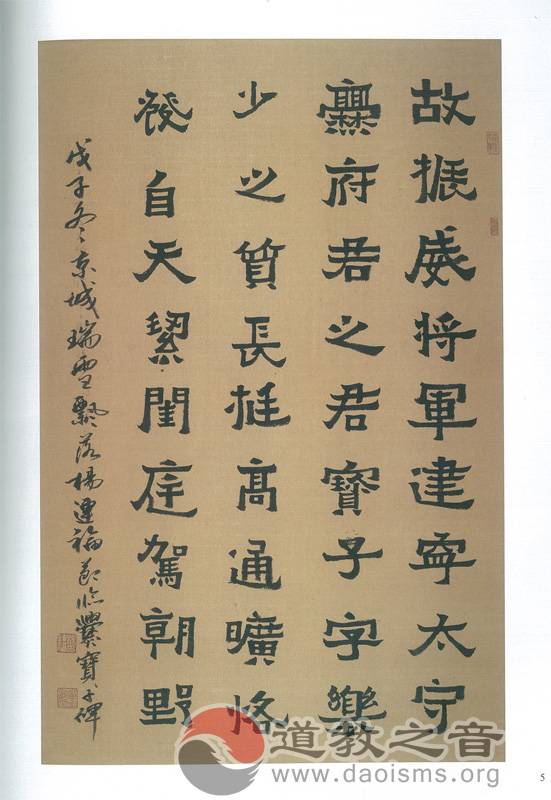 故振威将軍建寧太守
爨府君之君寶子字樂
少之質長挺高通曠恪
發自天絜閨庭駕朝野
戊子冬京城瑞雪飄落楊連福臨爨寶子碑
道教之音
www.daoisms.org
5